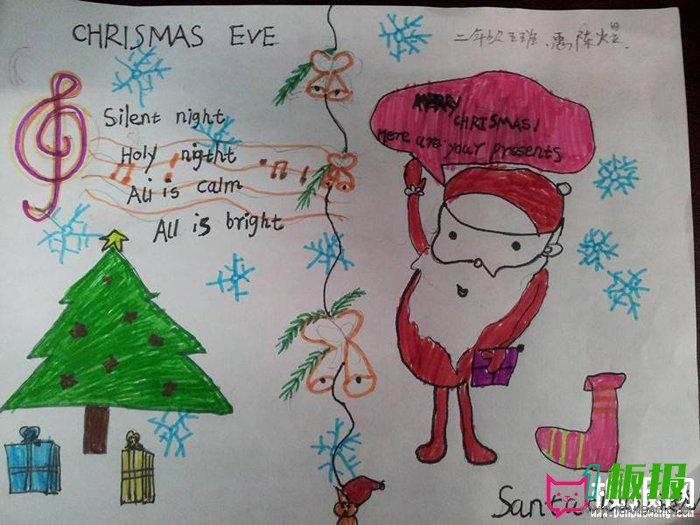 CHRISMAS EVE
二年级五班
Silent night
Holy nigtht
All is calm
All is bright
MERRY
CHRISMAS!
Here are your presents
板报
www.banbaowang.com